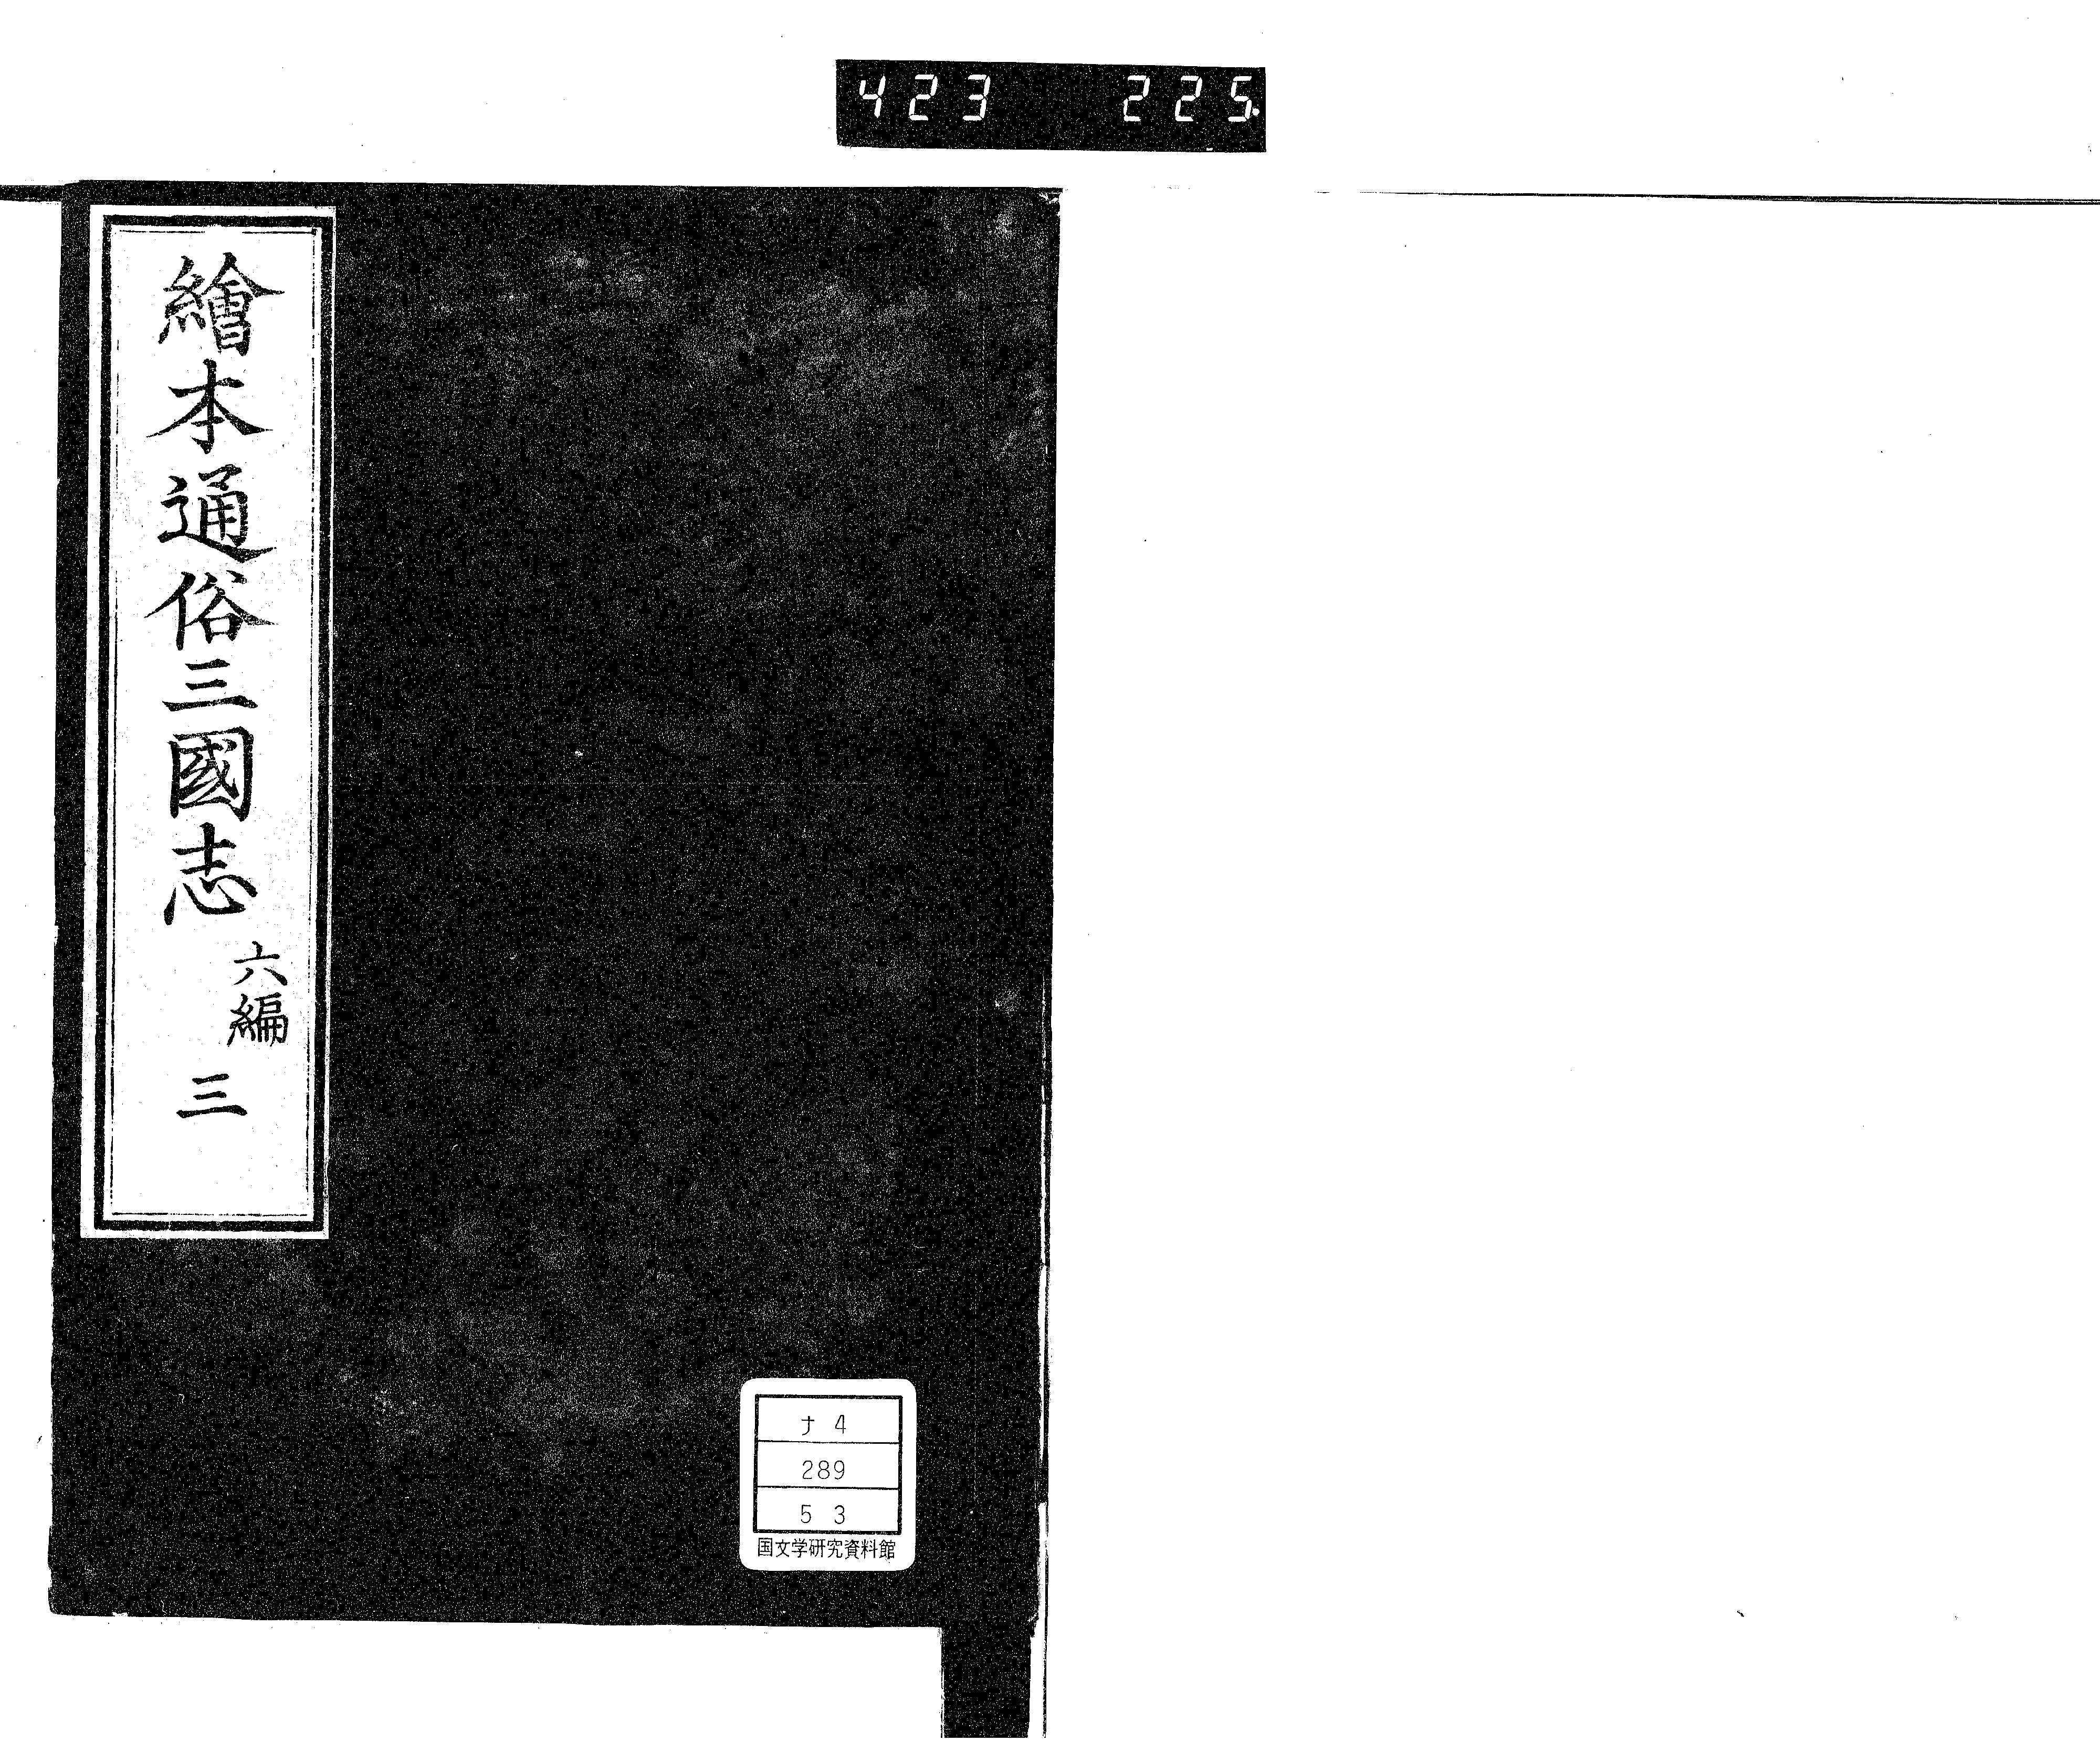 423 225
繪本通俗三國志
六編
三
ナ 4
289
5 3
国文学研究資料館